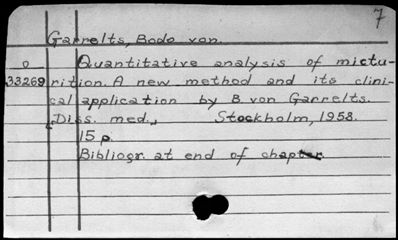 7
Garrelts, Bodo von.
o Quantitative analysis of mictu-
33269 rition. A new method and its clini-
cal application by B. von Garrelts.
[Diss. med., Stockholm, 1958.
15 p.
Bibliogr. at end of chapter